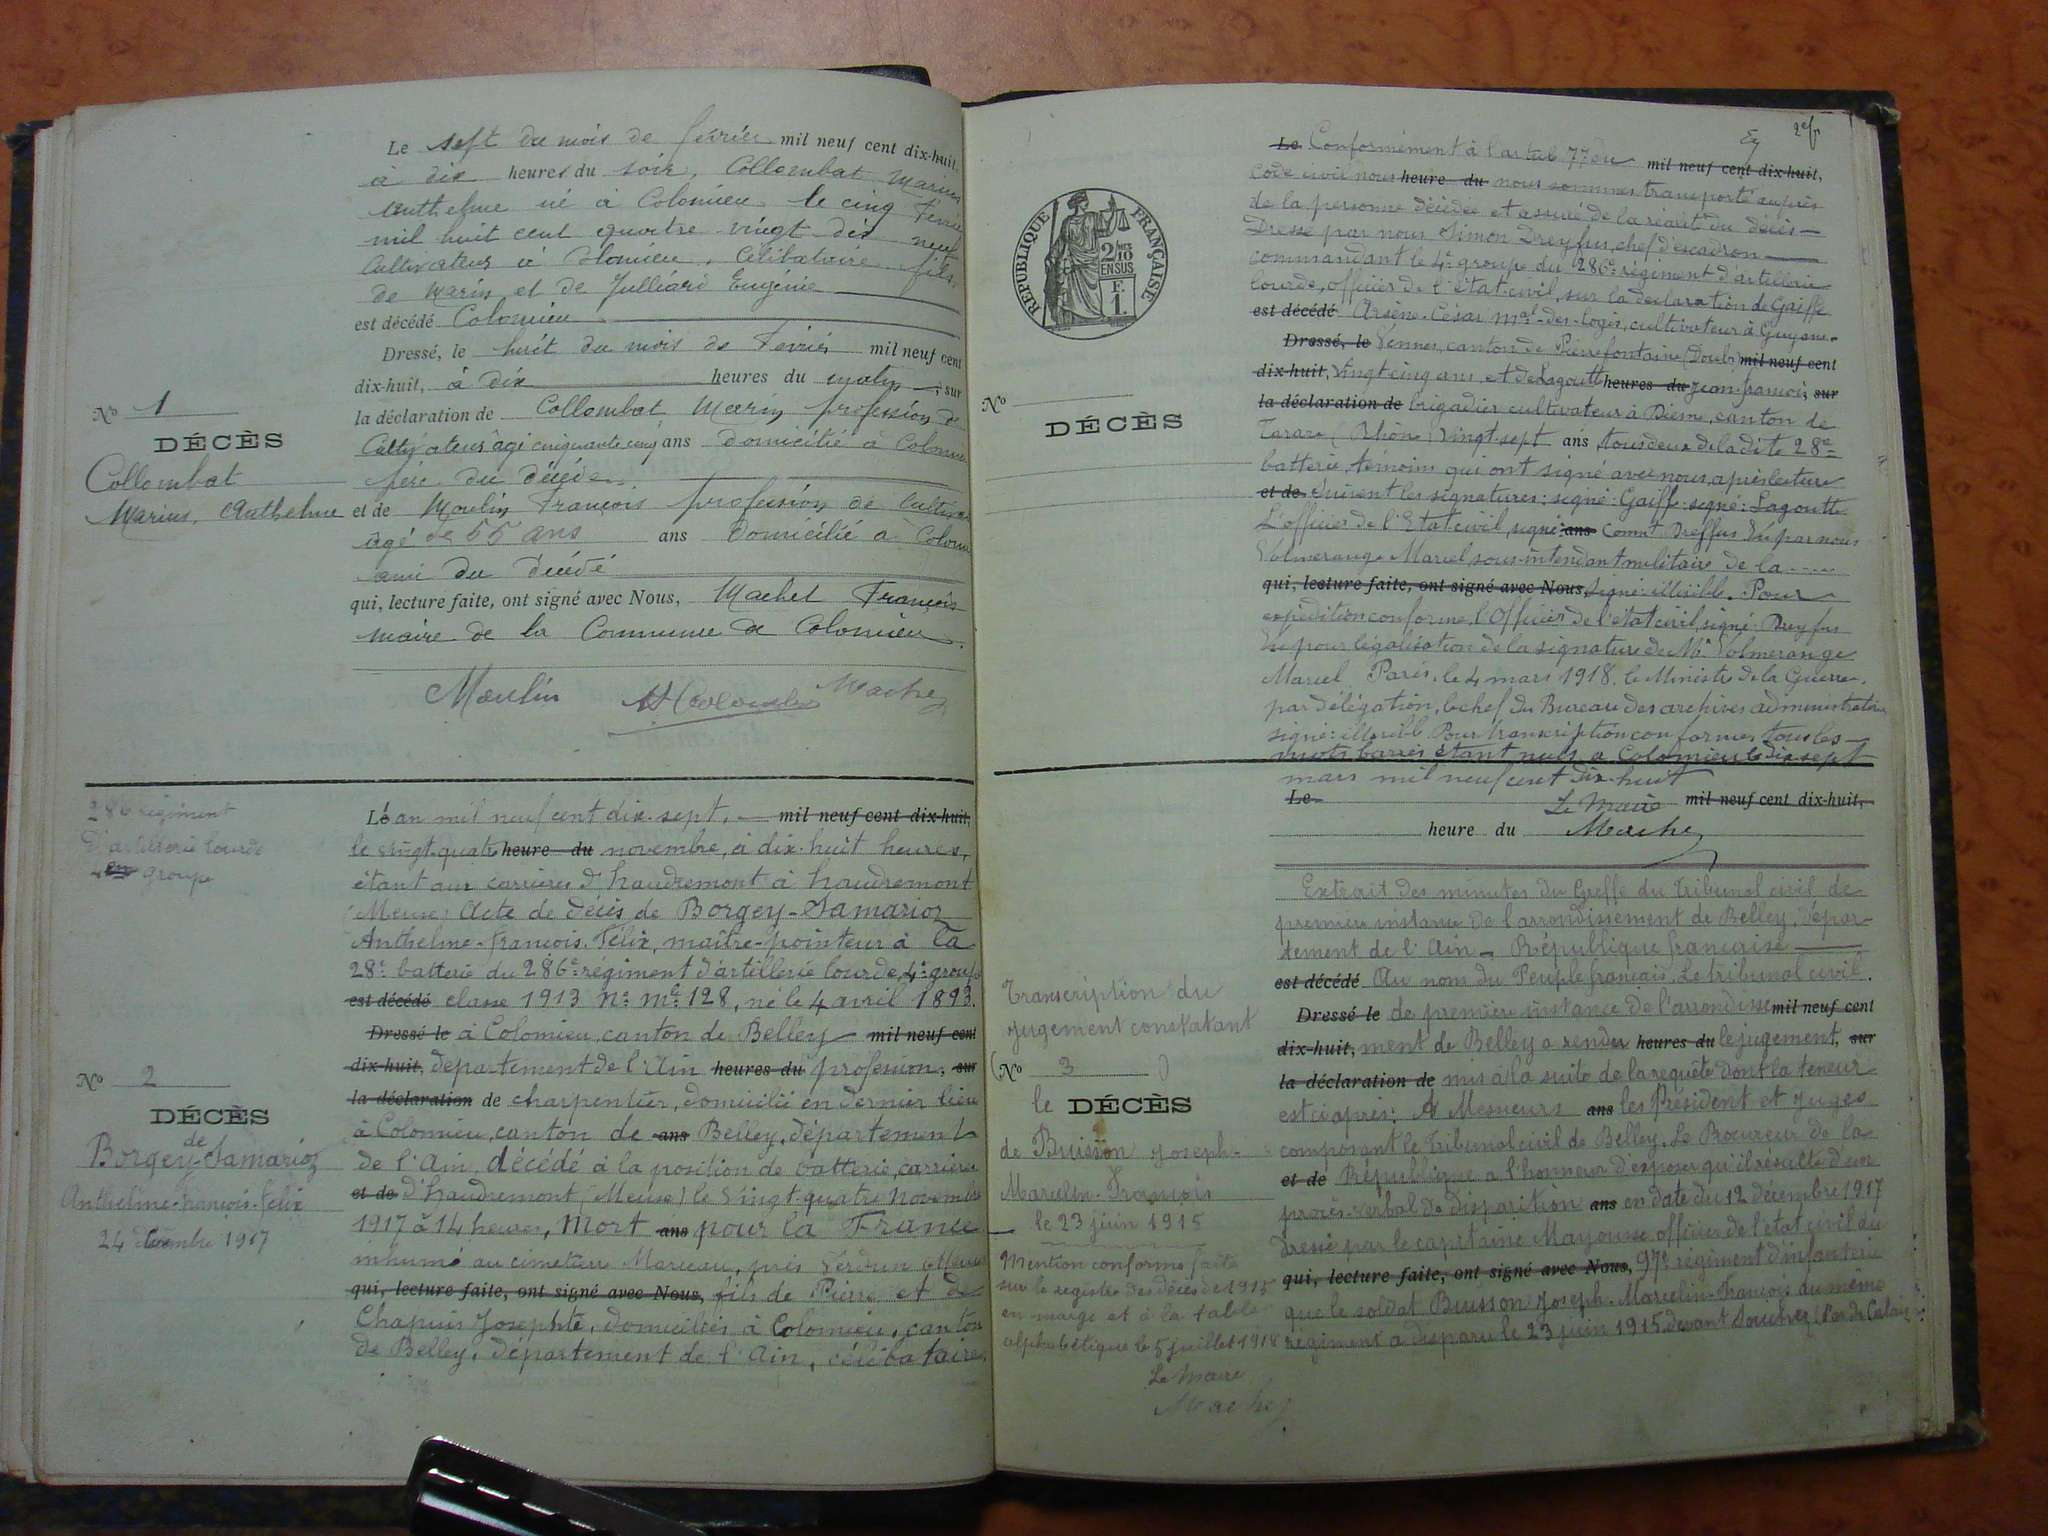 Le sept du mois de février mil neuf cent dix-huit,
à dix heures du soir, Collombat Marius
Anthelme né à Colomieu le cinq Février
mil huit cent quatre vingt dix neuf
Cultivateur à Colomieu, Célibataire fils
de Marin et de Julliard Eugénie
est décédé Colomieu
Dressé, le huit du mois de Février mil neuf cent
dix-huit, à dix heures du matin, sur
la déclaration de Collombat Marin profession de
Cultivateur âgé cinquante cinq ans domicilié à Colomieu
père du décédé
et de Moulin François profession de Cultiva
âgé de 55 ans ans domicilié à Colomieu
ami du décédé
qui, lecture faite, ont signé avec Nous, Machet François
maire de la Commune de Colomieu
Moulin
Nº 1
DÉCÈS
Collombat
Marius, Anthelme
286 régiment
d'artillerie lourde
groupe
L'an mil neuf cent dix-sept, mil neuf cent dix-huit,
le vingt-quatre heure du novembre, à dix-huit heures,
étant aux carrières d'haudremont à haudremont
(Meuse) Acte de décès de Borgey-Samarioz
Anthelme-François-Félix, maître-pointeur à la
28e batterie du 286e régiment d'artillerie lourde, 4e groupe
est décédé classe 1913 No Mle 128, né le 4 avril 1893
Dressé le à Colomieu, canton de Belley mil neuf cent
dix-huit, département de l'Ain heures du profession, sur
la déclaration de charpentier, domicilié en dernier lieu
à Colomieu, canton de ans Belley, département
de l'Ain, décédé à la position de batterie, carrière
et de d'haudremont (Meuse) le vingt-quatre novembre
1917 à 14 heures, Mort ans pour la France
inhumé au cimetière Marceau, près Verdun (Meuse
qui, lecture faite, ont signé avec Nous, fils de Pierre et de
Chapuis Josephte, domiciliés à Colomieu, canton
de Belley, département de l'Ain, célibataire.
Nº 2
DÉCÈS
de
Borgey-Samarioz
Anthelme-François-Félix
24 1917
2e f
RÉPUBLIQUE FRANÇAISE
2/10
EN SUS
F.
1.
Le Conformément à l'article 77 du mil neuf cent dix-huit,
code civil nous heure du nous sommes transporté auprès
de la personne décédée et assuré de la réalité du décès
Dressé par nous Simon Dreyfus, chef d'escadron
commandant le 4e groupe du 286e régiment d'artillerie
lourde, officier de l'état-civil, sur la déclaration de Gaiffe
est décédé Arsène-César Mal-des-logis, cultivateur à Guyans-
Dressé, le Vennes, canton de Pierrefontaine (Doubs) mil neuf cent
dix-huit, vingt cinq ans, et de Lagoutte heures du Jean-françois, sur
la déclaration de brigadier cultivateur à Dième, canton de
Tarare (Rhône) vingt-sept ans, tous deux de la dite 28e
batterie, témoins qui ont signé avec nous, après lecture
et de Suivent les signatures: signé: Gaiffe signé: Lagoutte
L'officier de l'Etat civil, signé: ans Comnt Dreffus Vu par nous
Volmerange Marcel sous-intendant militaire de la .....
qui, lecture faite, ont signé avec Nous, signé: illisible. Pour
expédition conforme, l'Officier de l'état civil, signé: Dreyfus
Vu pour légalisation de la signature de Mr Volmerange
Marcel Paris, le 4 mars 1918. le Ministre de la Guerre.
par délégation, le chef du Bureau des archives administratives
signé: illisible Pour transcription conforme, tous les
mots barrés étant nuls, à Colomieu le dix-sept
mars mil neuf cent dix-huit
Le Le Maire mil neuf cent dix-huit,
heure du
Nº
DÉCÈS
Extrait des minutes du Greffe du Tribunal civil de
première instance de l'arrondissement de Belley, dépar-
tement de l'Ain - République française
est décédé Au nom du Peuple français, Le tribunal civil
Dressé le de première instance de l'arrondisse mil neuf cent
dix-huit, ment de Belley a rendu heures du le jugement, sur
la déclaration de mis à la suite de la requête dont la teneur
est ci après: A Messieurs ans les Président et Juges
composant le Tribunal civil de Belley. Le Procureur de la
et de République a l'honneur d'exposer qu'il résulte d'un
procès-verbal de disparition ans en date du 12 décembre 1917
dressé par le capitaine Mayousse officier de l'état civil du
qui, lecture faite, ont signé avec Nous, 97e régiment d'infanterie
que le soldat Buisson Joseph-Marcelin-François du même
régiment a disparu le 23 juin 1915 devant Souchez (Pas de Calais)
Transcription du
jugement constatant
Nº 3
le DÉCÈS
de Buisson Joseph-
Marcelin-François
le 23 juin 1915
Mention conforme faite
sur le registre des décès de 1915
en marge et à la table
alphabétique le 5 juillet 1918
Le Maire